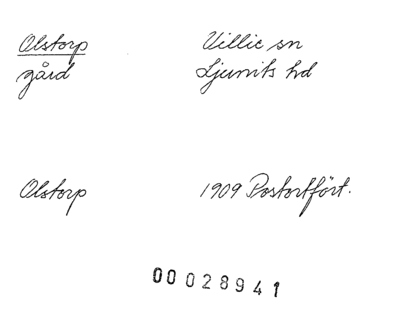 Olstorp Villie sn
gård Ljunits hd
Olstorp 1909 Postortfört.
00028941